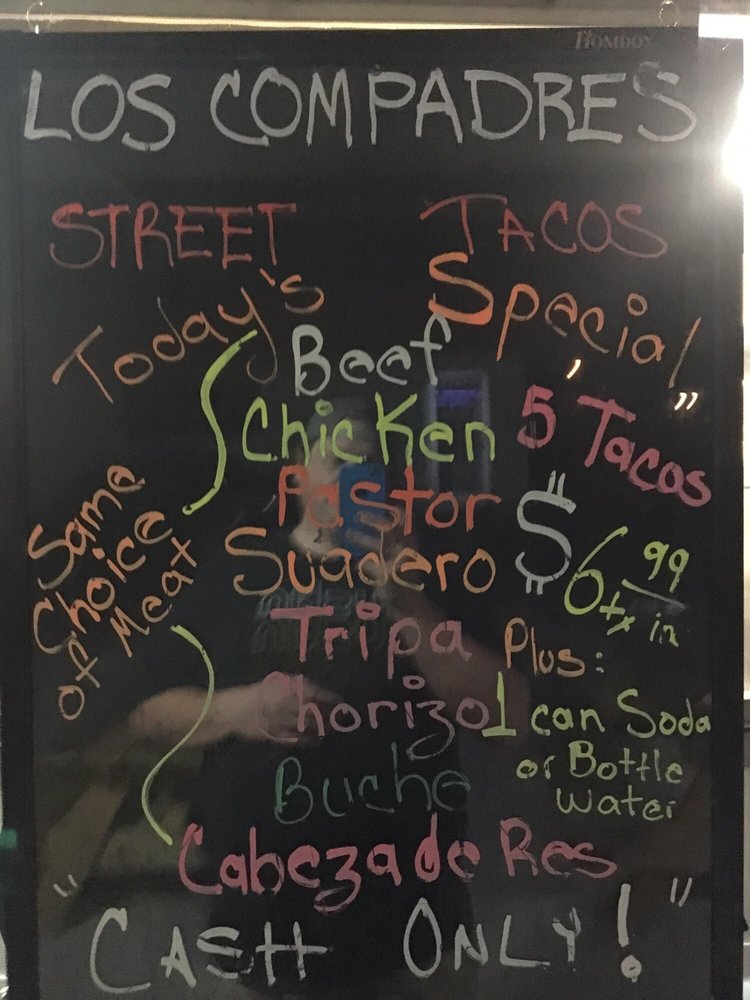 HOMDOX
LOS COMPADRES
STREET TACOS
Today's Special
Same
Choice
of Meat
Beef
Chicken
Pastor
Suadero
Tripa
Chorizo
Buche
Cabeza de Res
5 Tacos
$6.99
tx in
Plus:
1 can Soda
or Bottle
Water
"CASH ONLY!"